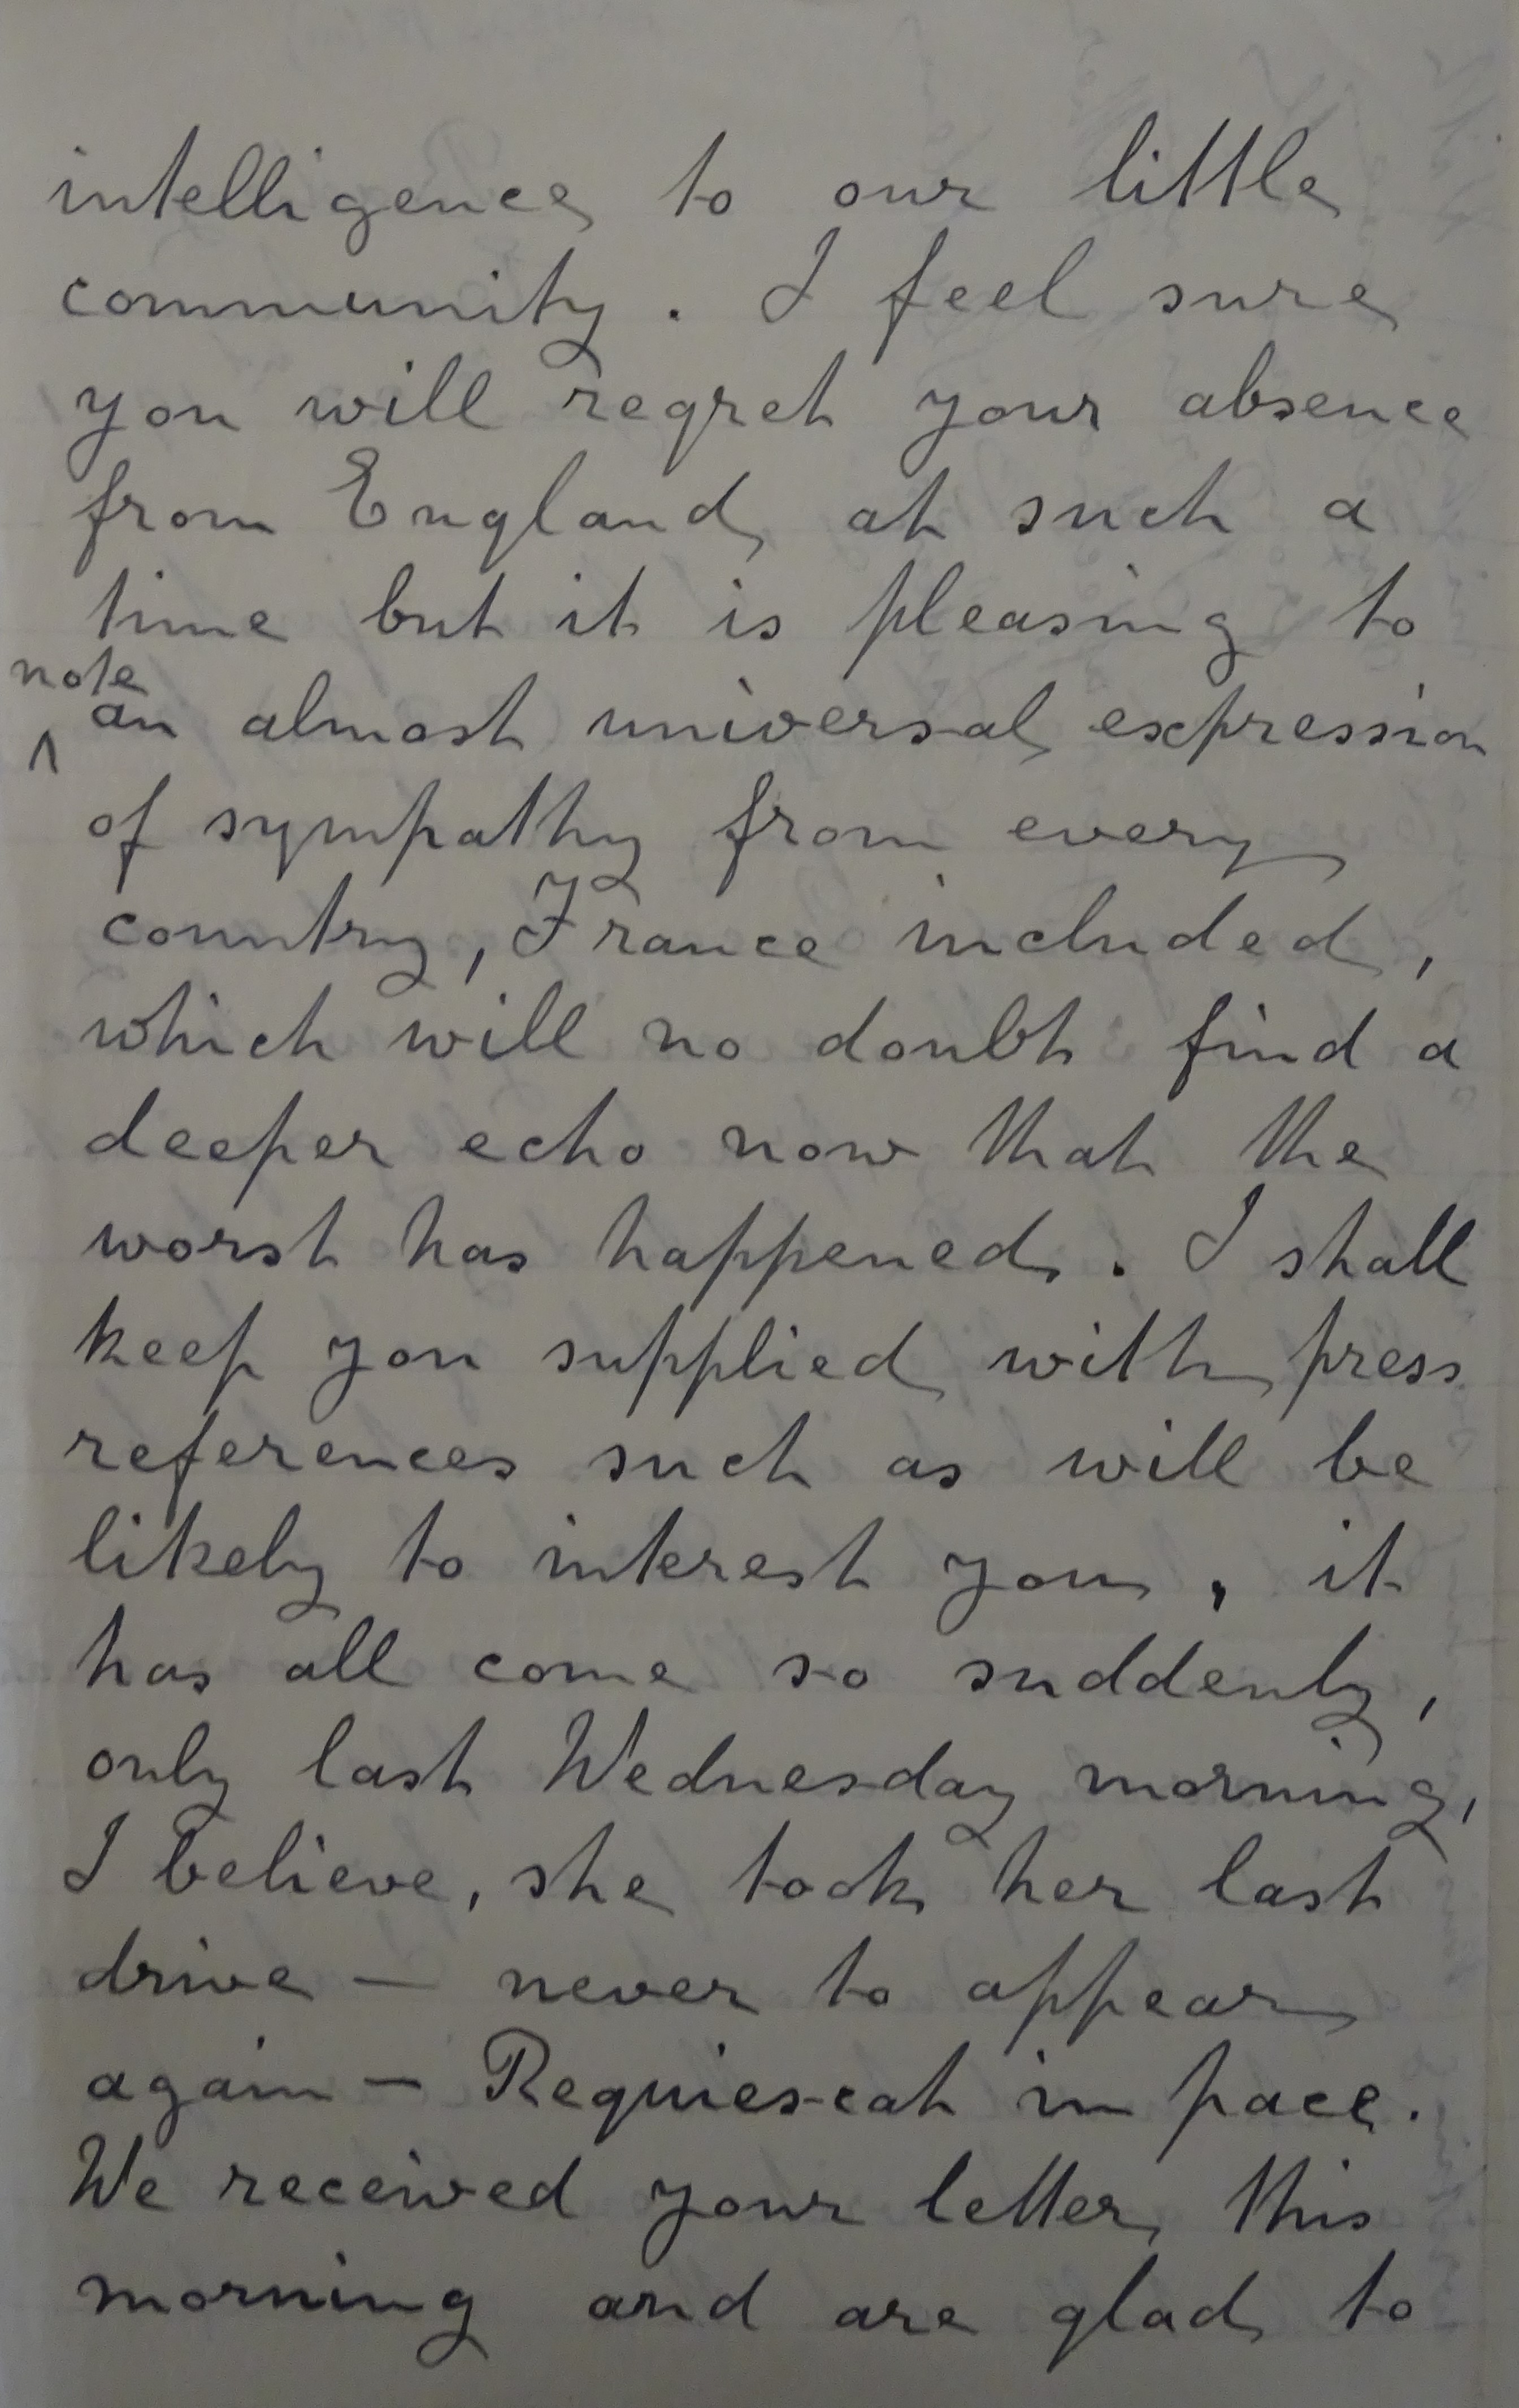 intelligence to our little
community. I feel sure
you will regret your absence
from England at such a
time but it is pleasing to
note
^ an almost universal expression
of sympathy from every
country, France included,
which will no doubt find a
deeper echo now that the
worst has happened. I shall
keep you supplied with press
references such as will be
likely to interest you, it
has all come so suddenly,
only last Wednesday morning,
I believe, she took her last
drive — never to appear
again — Requiescat in pace.
We received your letter this
morning and are glad to